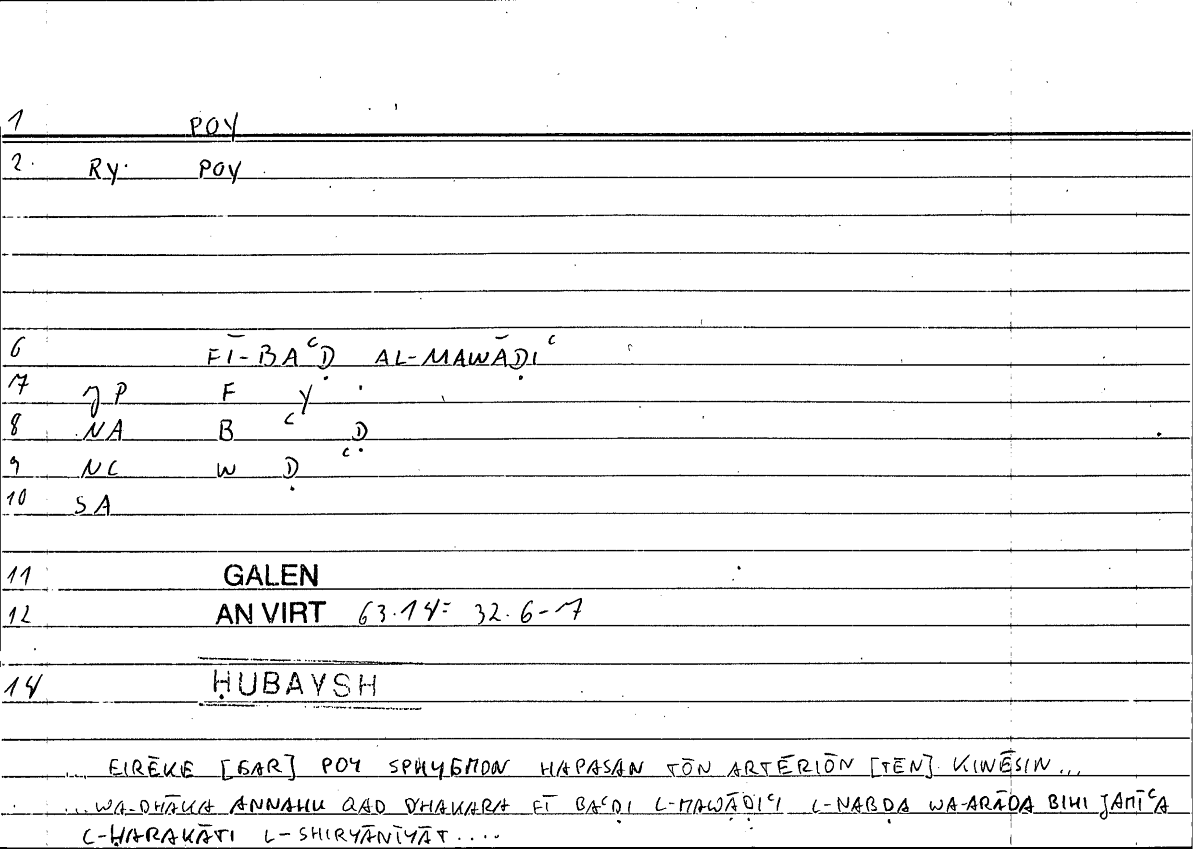 1 POY
2. Ry. POY
6 FĪ-BAᶜḌ AL-MAWĀḌIᶜ
7 JP F Y
8 NA B ᶜ Ḍ
9 NC W Ḍ ᶜ
10 SA
11 GALEN
12 AN VIRT 63.14= 32.6-7
14 ḤUBAYSH
... EIRĒKE [GAR] POY SPHYGMON HAPASAN TŌN ARTĒRIŌN [TĒN] KINĒSIN...
...WA-DHĀKA ANNAHU QAD DHAKARA FĪ BAᶜḌI L-MAWĀḌIᶜI L-NABḌA WA-ARĀDA BIHI JAMĪᶜA
L-ḤARAKĀTI L-SHIRYĀNĪYĀT....